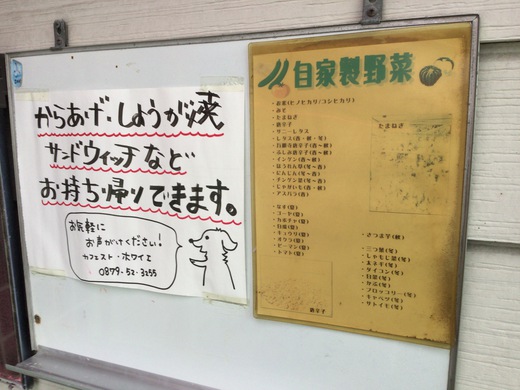 からあげ・しょうが焼
サンドウィッチなど
お持ち帰りできます。
お気軽に
お声がけください!
カフェスト・ホワイエ
0879-52-3155
自家製野菜
・お米(ヒノヒカリ/コシヒカリ)
・みそ
・たまねぎ
・唐辛子
・サニーレタス
・レタス(春・秋・冬)
・万願寺唐辛子(春〜秋)
・ふしみ唐辛子(春〜秋)
・インゲン(春〜秋)
・ほうれん草(冬〜春)
・にんじん(冬〜春)
・チンゲン菜(冬〜春)
・じゃがいも(春・秋)
・アスパラ(春)
・なす(夏)
・ゴーヤ(夏)
・カボチャ(夏)
・白瓜(夏)
・キュウリ(夏)
・オクラ(夏)
・ピーマン(夏)
・トマト(夏)
たまねぎ
・さつま芋(秋)
・三つ葉(冬)
・しゃもじ菜(冬)
・太ネギ(冬)
・ダイコン(冬)
・白菜(冬)
・かぶ(冬)
・ブロッコリー(冬)
・キャベツ(冬)
・サトイモ(冬)
唐辛子